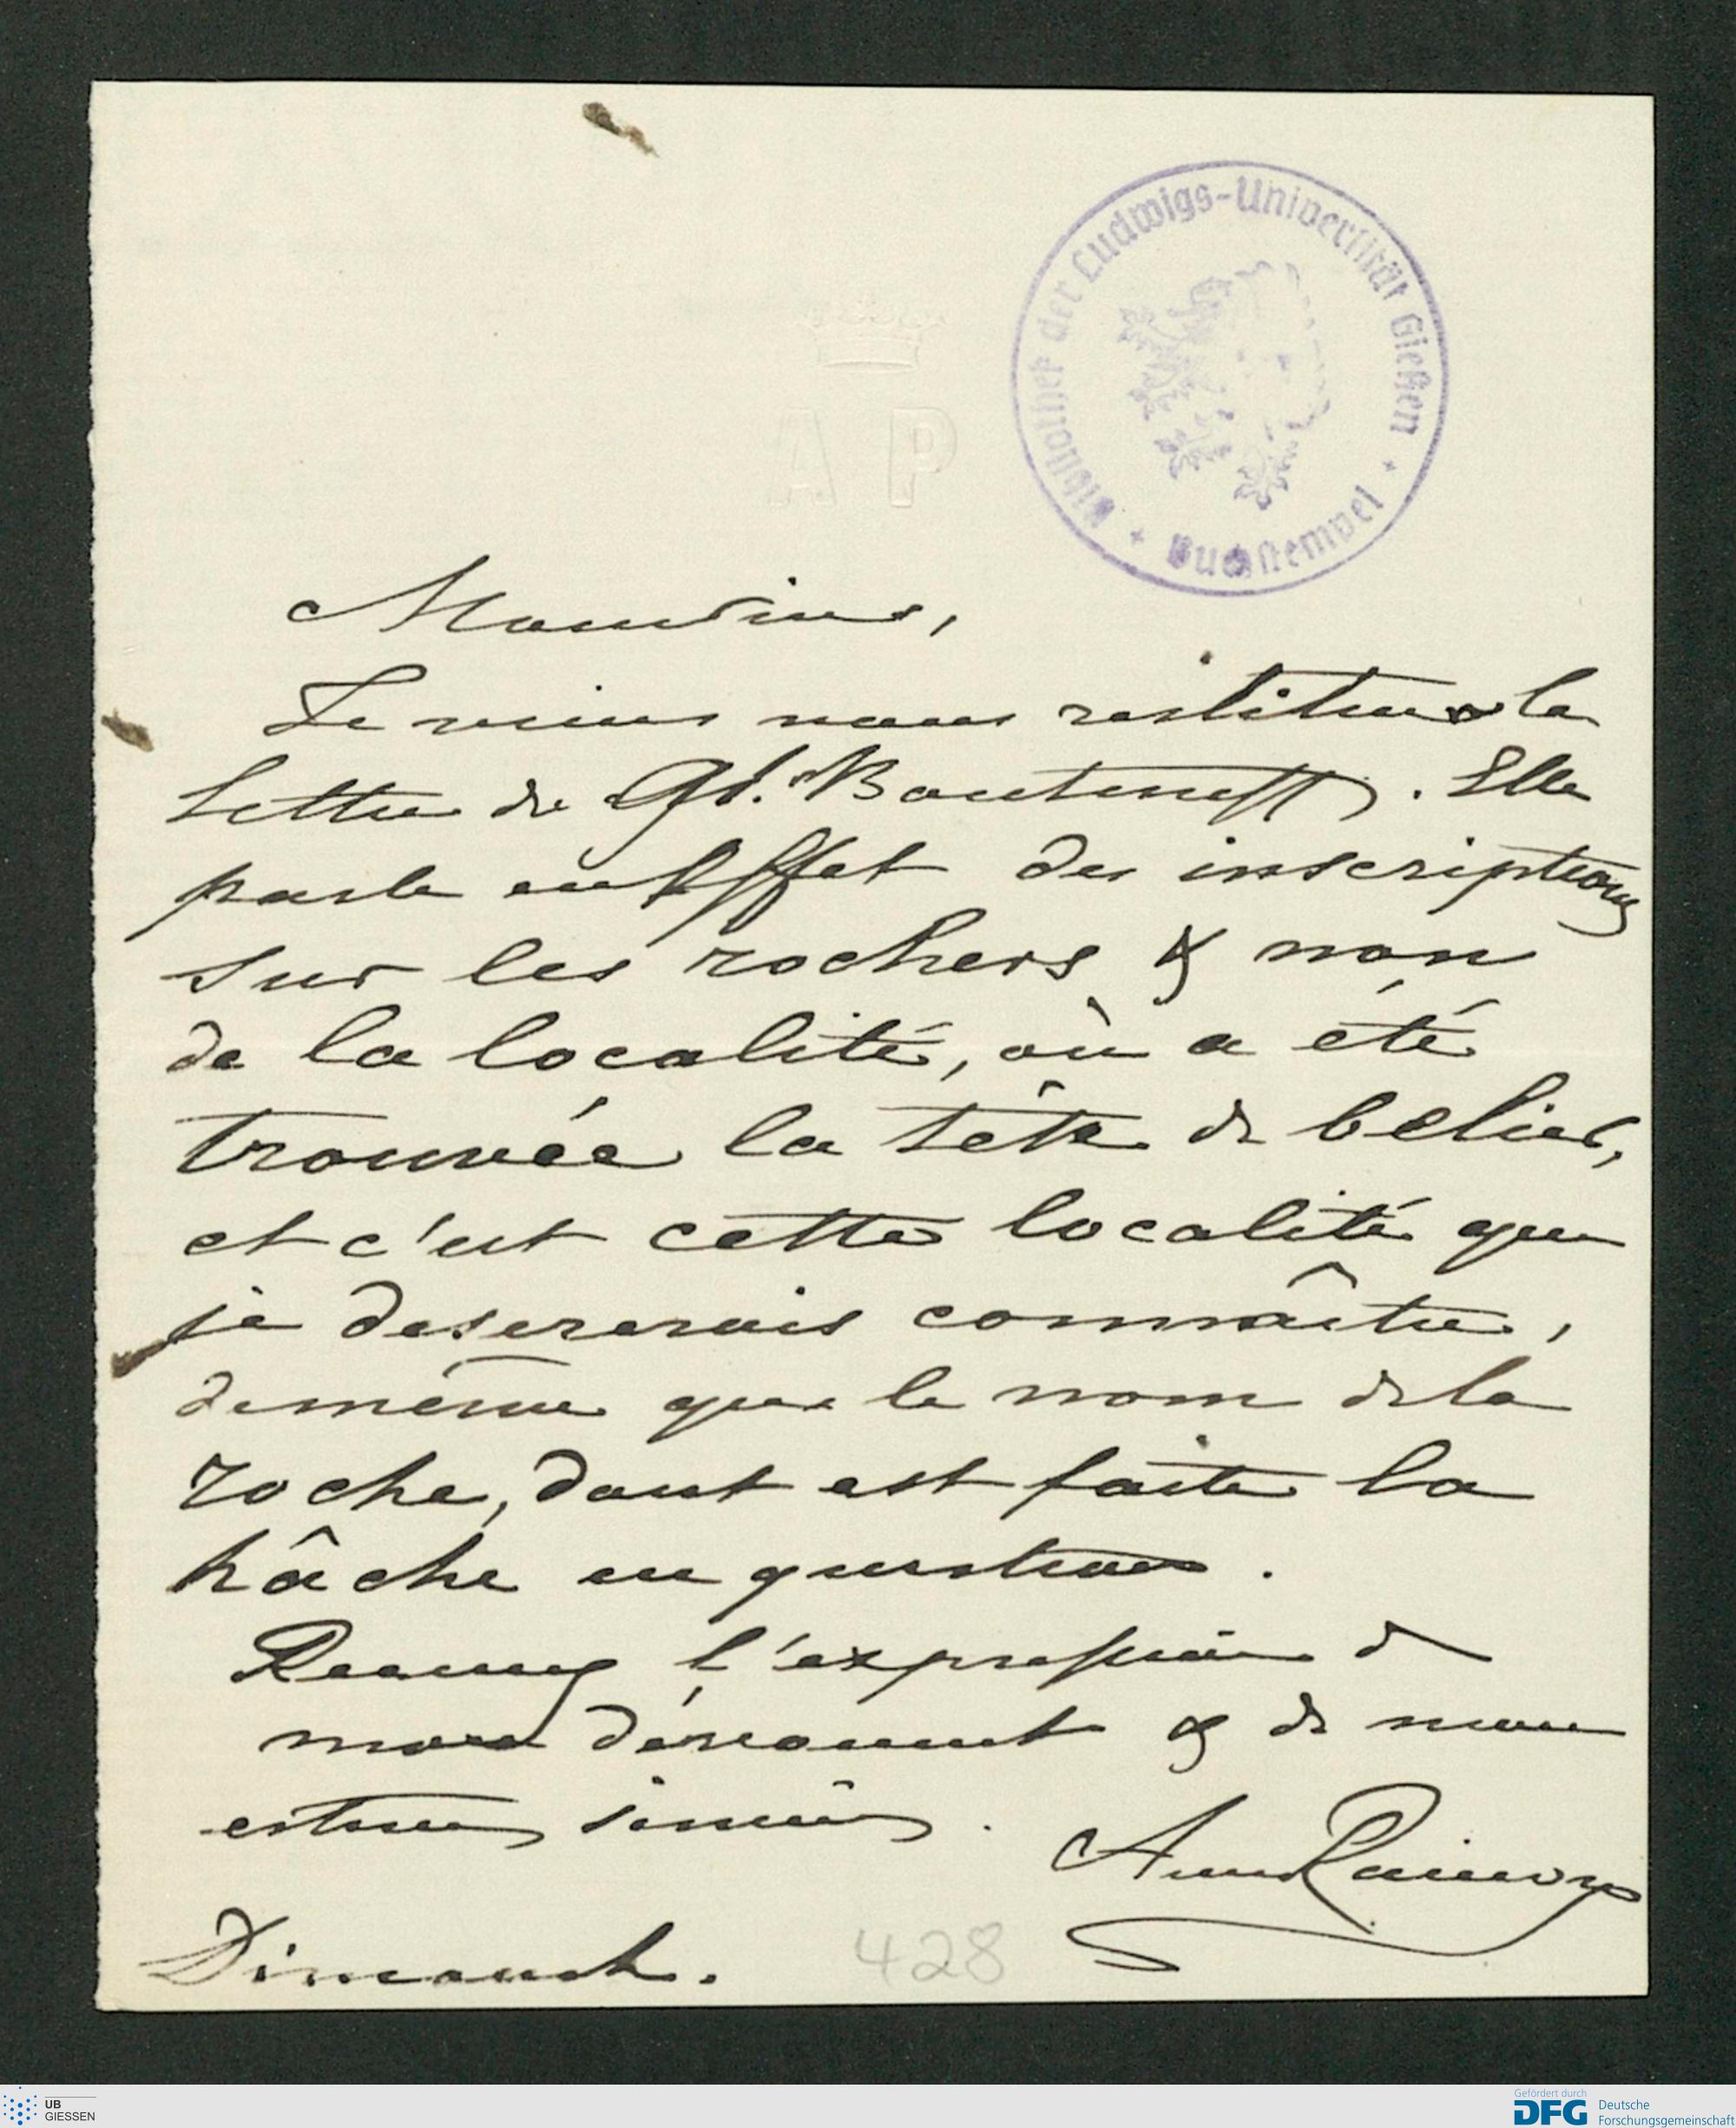 Bibliothek der Ludwigs-Universität Gießen
+ Buchstempel +
A P
Monsieur,
Je viens vous restituer la
lettre de Gd. Bouteneff. Elle
parle en effet des inscriptions
sur les rochers & non
de la localité, où a été
trouvée la tête de belier,
et c'est cette localité que
je desirerais connaître,
de même que le nom de la
roche, dont est faite la
hâche en question.
Recevez l'expression de
mon dévouement & de mon
estime sincère.
Dimanche.
428
UB
GIESSEN
Gefördert durch
DFG Deutsche
Forschungsgemeinschaft